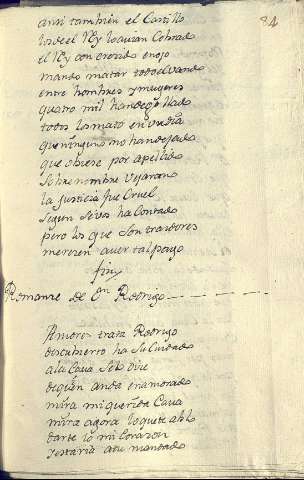 84
ansi tambien el Castillo
los de el Rey lo avian Cobrado
el Rey con crecido enojo
mando matar todo el vando
entre hombres y mugeres
quatro mil han degollado
todos los mato en un dia
que ninguno no han dejado
que obiese por apellido
sobre nombre Vejarano
la justicia fue Cruel
segun se os ha Contado
pero los que son traydores
merecen aver tal pago
fin
Romanze de Dn Rodrigo
Amores trata Rodrigo
descubierto ha su Cuidado
a la Cava se lo dice
de quien anda enamorado
mira mi querida Cava
mira agora lo que te hablo
darte lo mi Corazon
y estaria a tu mandado